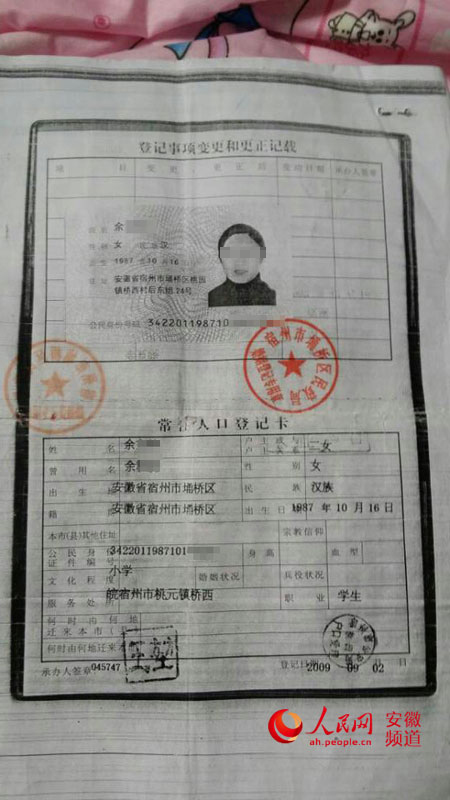 登记事项变更和更正记载
项 目 变 更 更 正 后 变动日期 承办人签章
姓名 余
性别 女 民族 汉
出生 1987 年 10 月 16 日
住址 安徽省宿州市埇桥区桃园
镇桥西村后东组 24号
公民身份号码 342201198710
宿州市埇桥区民政局
常住人口登记卡
姓 名 余 户主或与户主关系 二女
曾用名 余 性 别 女
出 生 地 安徽省宿州市埇桥区 民 族 汉族
籍 贯 安徽省宿州市埇桥区 出生日期 1987 年 10 月 16 日
本市(县)其他住址 宗教信仰
公民身份证件编号 3422011987101 身 高 血 型
文化程度 小学 婚姻状况 兵役状况
服务处所 皖宿州市桃元镇桥西 职 业 学生
何时由何地迁来本市
何时由何地迁来本
承办人签章 045747 登记日期 2009 09 02
人民网 安徽频道
ah.people.cn